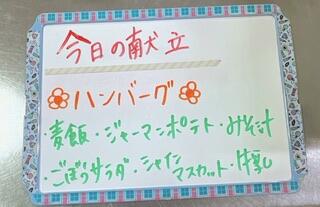 今日の献立
ハンバーグ
麦飯・ジャーマンポテト・みそ汁
・ごぼうサラダ・シャインマスカット・牛乳